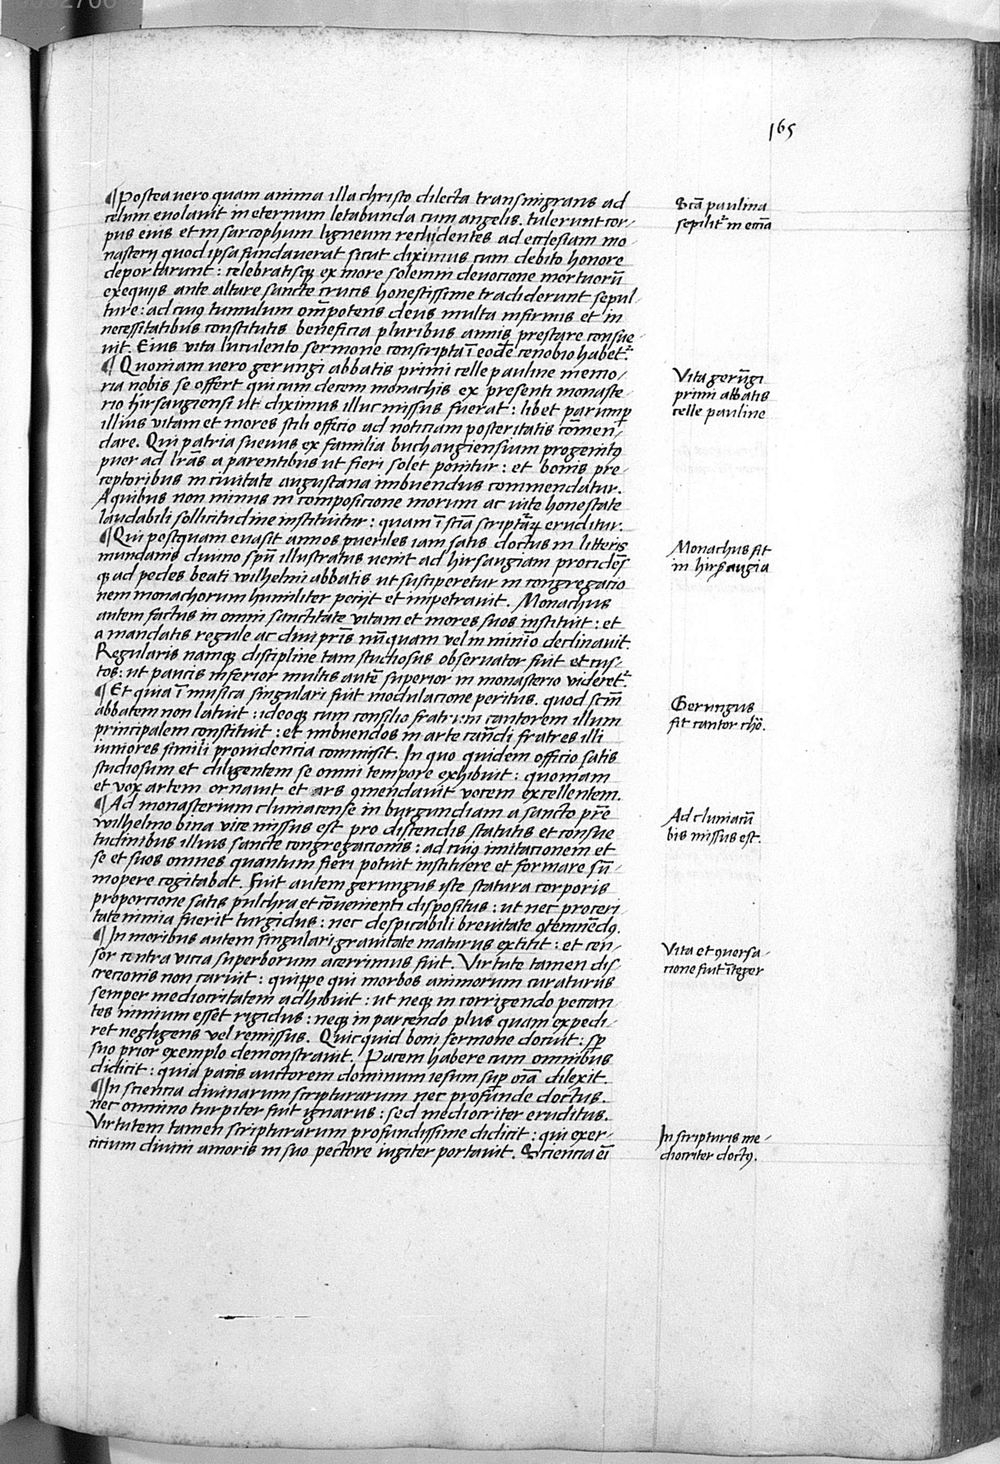 165
¶ Postea vero quam anima illa christo dilecta transmigrans ad
celum euolauit in eternum letabunda cum angelis. tulerunt cor-
pus eius et in sarcophum ligneum recludentes ad ecclesiam mo-
nasterij quod ipsa fundauerat sicut diximus cum debito honore
deportarunt : celebratisqꝫ ex more solemni deuocione mortuorū
exequijs ante altare sancte crucis honestissime tradiderunt sepul-
ture : ad cuiꝰ tumulum om̄ipotens deus multa infirmis et in
necessitatibus constitutis beneficia pluribus annis prestare consue
uit. Eius vita luculento sermone conscripta ī eodē cenobio habet᷑.
¶ Quoniam vero gerungi abbatis primi celle pauline memo-
ria nobis se offert qui cum decem monachis ex presenti monaste-
rio hirsaugiensi ut diximus illuc missus fuerat : libet parumꝑ
illius vitam et mores stili officio ad noticiam posteritatis cōmen-
dare. Qui patria sueuus ex familia buchaugiensium progenito
puer ad lr̄as a parentibus ut fieri solet ponitur : et bonis pre-
ceptoribus in ciuitate augustana imbuendus commendatur.
A quibus non minus in composicione morum ac vite honestate
laudabili sollicitudine instituitur : quam ī scīa scripturaꝝ eruditur.
¶ Qui postquam euasit annos pueriles iam satis doctus in litteris
mundanis diuino spū illustratus venit ad hirsaugiam procidēs
qꝫ ad pedes beati wilhelmi abbatis ut susciperetur in congregacio
nem monachorum humiliter pecijt et impetrauit. Monachus
autem factus in omni sanctitate vitam et mores suos instituit : et
a mandatis regule ac diui pr̄is nūquam vel in minīo declinauit.
Regularis namqꝫ discipline tam studiosus obseruator fuit et cus-
tos : ut paucis inferior multis autē superior in monasterio videret᷑.
¶ Et quia ī musica singulari fuit modulacione peritus. quod scm̄
abbatem non latuit : ideoqꝫ cum consilio fratrum cantorem illum
principalem constituit : et imbuendos in arte canēdi fratres illi
iuniores simili prouidencia commisit. In quo quidem officio satis
studiosum et diligentem se omni tempore exhibuit : quoniam
et vox artem ornauit et ars ꝯmendauit vocem excellentem.
¶ Ad monasterium cluniacense in burgundiam a sancto pr̄e
wilhelmo bina vice missus est pro discendis statutis et consue
tudinibus illius sancte congregacionis : ad cuiꝰ imitacionem et
se et suos omnes quantum fieri potuit instituere et formare sū-
mopere cogitabat. Fuit autem gerungus iste statura corporis
proporcione satis pulchra et cōuenienti dispositus : ut nec proceri-
tate nimia fuerit turgidus : nec despicabili breuitate ꝯtemnēdꝰ.
¶ In moribus autem singulari grauitate maturus extitit : et cen-
sor contra vicia superborum acerrimus fuit. Virtute tamen dis-
crecionis non caruit : quippe qui morbos animorum curaturus
semper mediocritatem adhibuit : ut neqꝫ in corrigendo peccan-
tes nimium esset rigidus : neqꝫ in parcendo plus quam expedi-
ret negligens vel remissus. Quicquid boni sermone docuit : sp̄
suo prior exemplo demonstrauit. Pacem habere cum omnibus
didicit : quia pacis auctorem dominum iesum suꝑ oīa dilexit.
¶ In sciencia diuinarum scripturarum nec profunde doctus.
nec omnino turpiter fuit ignarus : sed mediocriter eruditus.
Virtutem tamen scripturarum profundissime didicit : qui exer-
cicium diuini amoris in suo pectore iugiter portauit. Sciencia ei̅
Sctā paulina
sepilit᷑ in eccīa
Vita gerūgi
primi abbatis
celle pauline
Monachus fit
in hirsaugia
Gerungus
fit cantor chō.
Ad cluniacū
bis missus est.
Vita et ꝯuersa-
cione fuit īteger
In scripturis me-
diocriter doctꝰ.